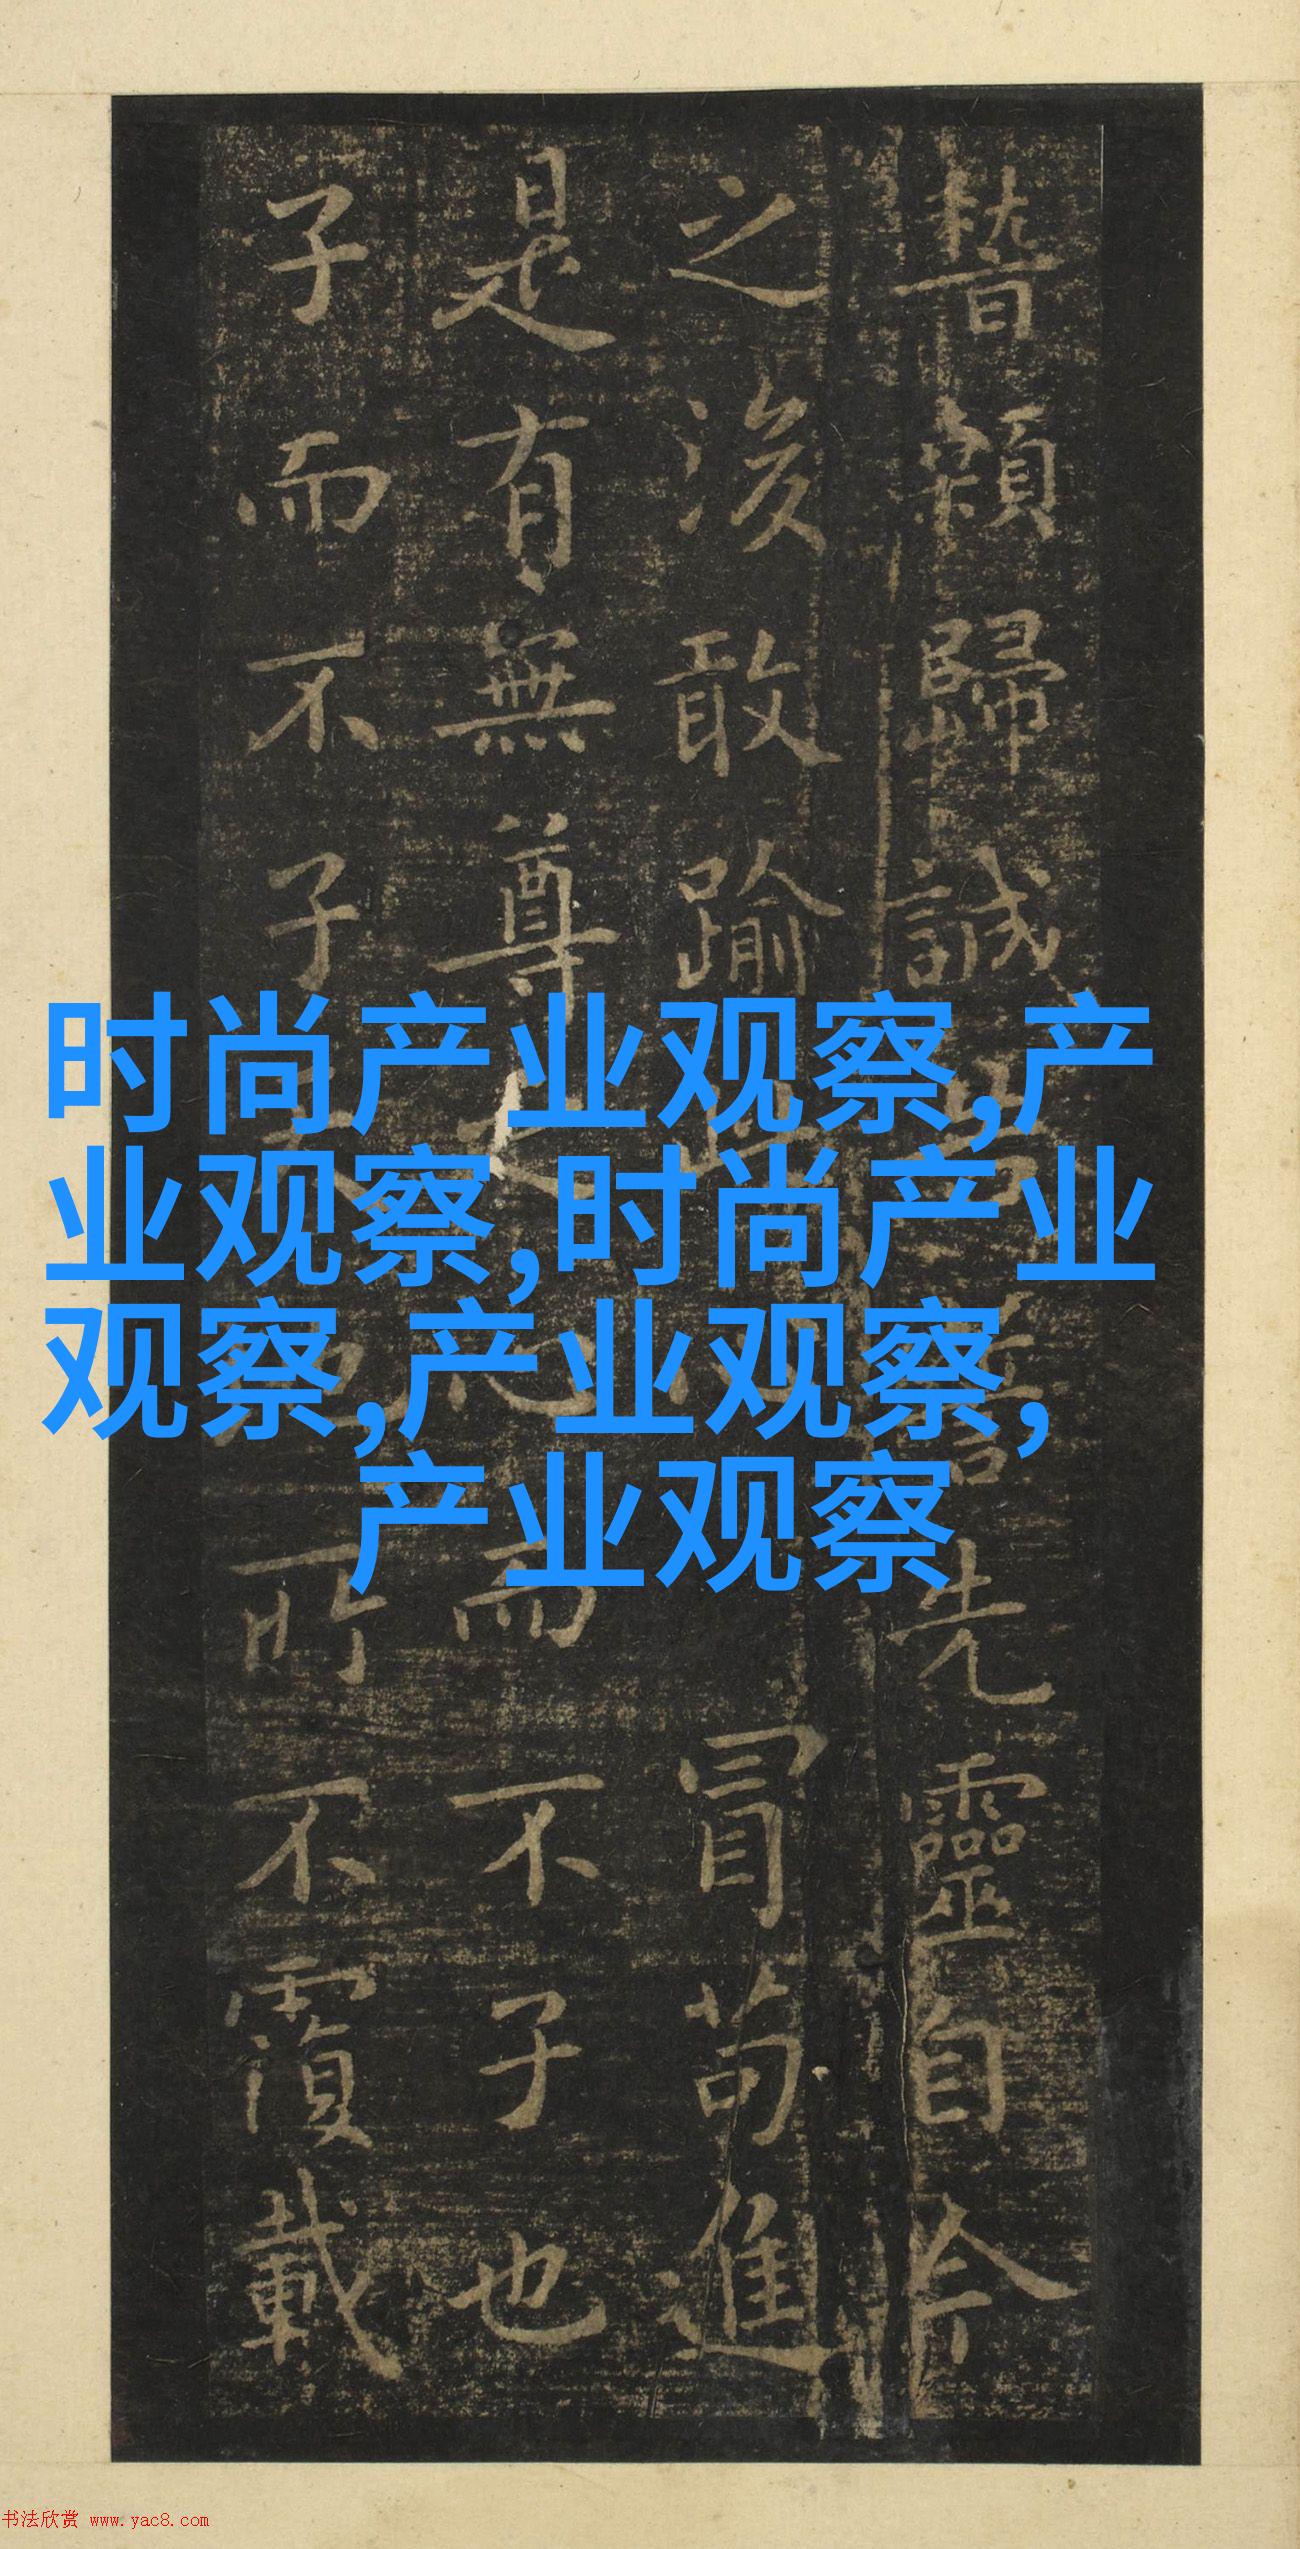 稽顙歸誠告誓先靈自今
之後敢踰此心冒苟進
是有無尊之心而不子也
子而不子天地所不覆載
时尚产业观察,产
业观察,时尚产业
观察,产业观察,
产业观察
书法欣赏 www.yac8.com